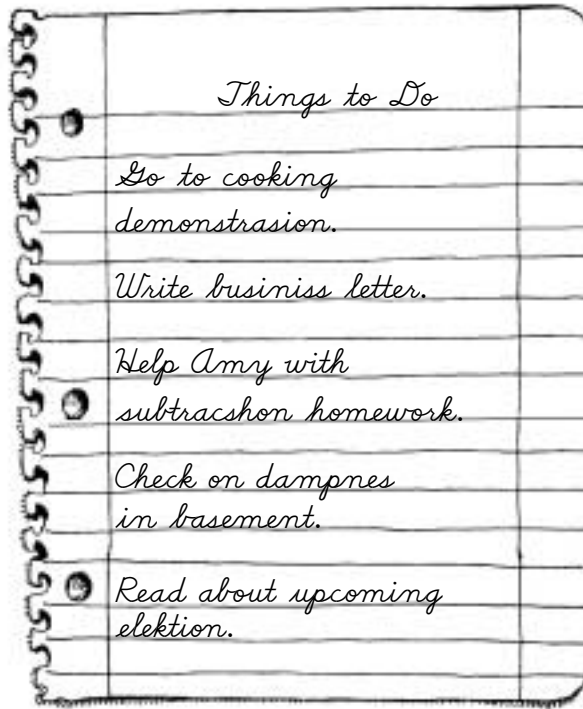 Things to Do
Go to cooking
demonstrasion.
Write businiss letter.
Help Amy with
subtracshon homework.
Check on dampnes
in basement.
Read about upcoming
elektion.